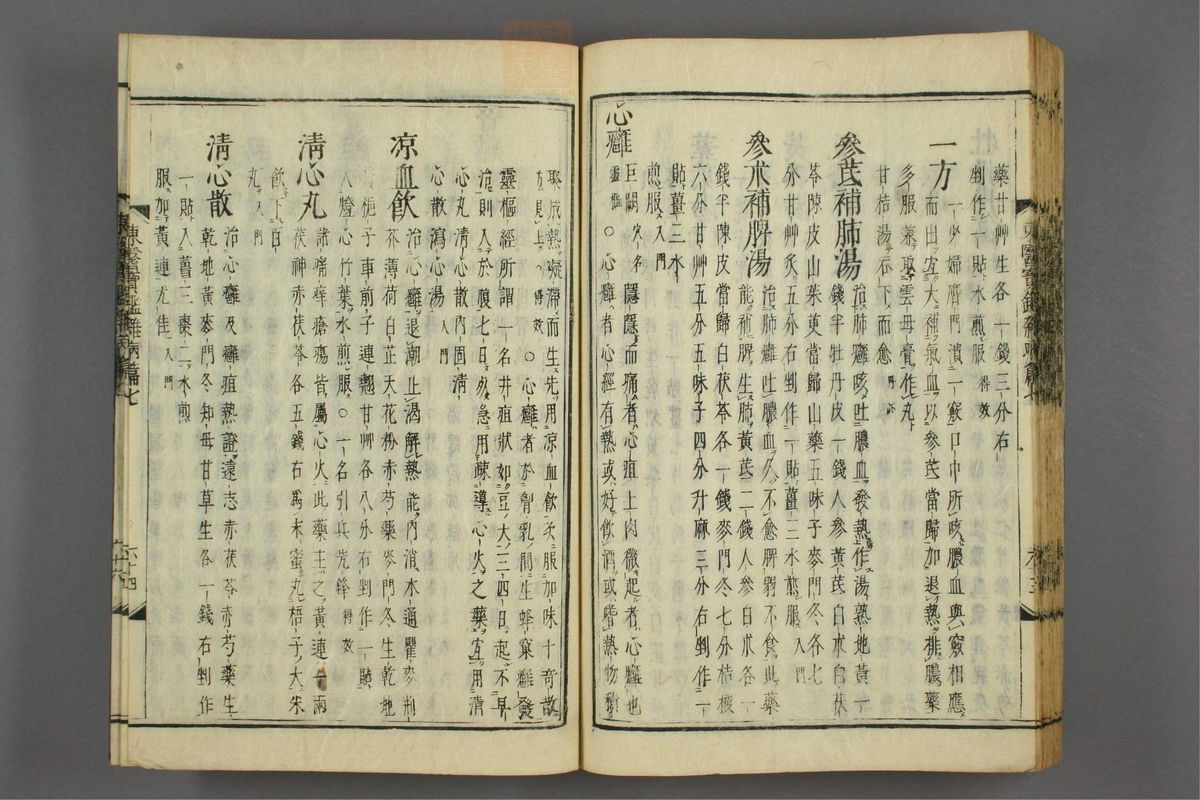 藥甘艸生各一錢三分右
剉作一貼水煎服得效
一方一少婦脣門潰一竅口中所咳膿血與竅相應
而出宜大補氣血以參芪當歸加退熱排膿藥
多服兼取雲母膏作丸
甘桔湯吞下而愈
參芪補肺湯治肺癰咳吐膿血發熱作渴熟地黃一
錢半牡丹皮一錢人參黃芪白朮白茯
苓陳皮山茱萸當歸山藥五味子麥門冬各七
分甘艸炙五分右剉作一貼薑三水煎服入門
參朮補脾湯治肺癰吐膿血久不愈脾弱不食此藥
能補脾生肺黃芪二錢人參白朮各一
錢半陳皮當歸白茯苓各一錢麥門冬七分桔梗
六分甘艸五分五味子四分升麻三分右剉作一
貼薑三水
煎服入門
心癰巨闕穴名隱隱而痛者心疽上肉微起者心癰也
靈樞○心癰者心經有熱或好飲酒或嗜熱物積
聚成熱凝滯而生先用凉血飲次服加味十奇散
方見上○得效○心癰者於䏚乳間生蜂窠癰發
靈樞經所謂一名井疽狀如豆大三四日起不早
治則入於腹七日成急用疎導心火之藥宜用清
心丸清心散內固清
心散瀉心湯入門
凉血飲治心癰退潮止渴解熱能內消木通瞿麥荊
芥薄荷白芷天花粉赤芍藥麥門冬生乾地
黃梔子車前子連翹甘艸各八分右剉作一貼
入燈心竹葉水煎服○一名引兵先鋒得效
清心丸諸痛痒瘡瘍皆屬心火此藥主之黃連一兩
茯神赤茯苓各五錢右爲末蜜丸梧子大米
飲下百
丸入門
清心散治心癰及癰疽熱證遠志赤茯苓赤芍藥生
乾地黃麥門冬知母甘草生各一錢右剉作
一貼入薑三棗二水煎
服加黃連尤佳入門
東醫寶鑑雜病篇七
六十四